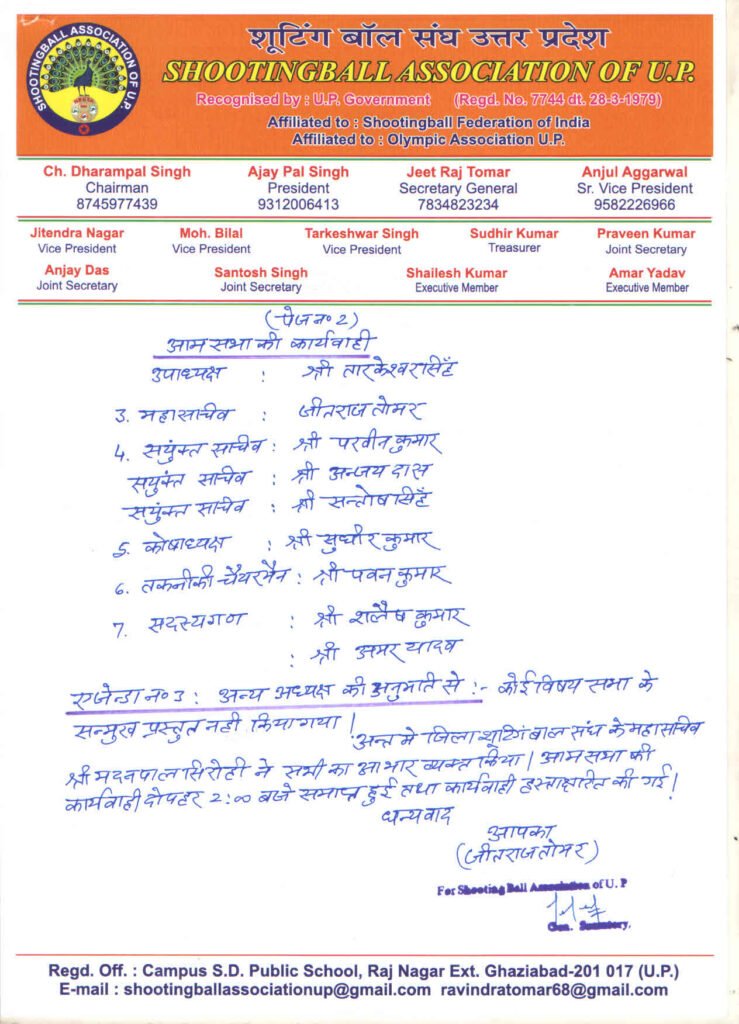 शूटिंग बॉल संघ उत्तर प्रदेश
SHOOTINGBALL ASSOCIATION OF U.P.
SHOOTINGBALL ASSOCIATION OF U.P.
Recognised by : U.P. Government (Regd. No. 7744 dt. 28-3-1979)
Affiliated to : Shootingball Federation of India
Affiliated to : Olympic Association U.P.
Ch. Dharampal Singh Ajay Pal Singh Jeet Raj Tomar Anjul Aggarwal
Chairman President Secretary General Sr. Vice President
8745977439 9312006413 7834823234 9582226966
Jitendra Nagar Moh. Bilal Tarkeshwar Singh Sudhir Kumar Praveen Kumar
Vice President Vice President Vice President Treasurer Joint Secretary
Anjay Das Santosh Singh Shailesh Kumar Amar Yadav
Joint Secretary Joint Secretary Executive Member Executive Member
(पेज न० 2)
आम सभा की कार्यवाही
उपाध्यक्ष : श्री तारकेश्वर सिंह
3. महासचिव : जीतराज तोमर
4. सयुंक्त सचिव : श्री परवीन कुमार
सयुंक्त सचिव : श्री अन्जय दास
सयुंक्त सचिव : श्री सन्तोष सिंह
5. कोषाध्यक्ष : श्री सुधीर कुमार
6. तकनीकी चैयरमैन : श्री पवन कुमार
7. सदस्यगण : श्री शलैष कुमार
: श्री अमर यादव
एजेन्डा न० 3 : अन्य अध्यक्ष की अनुमति से :- कोई विषय सभा के
सन्मुख प्रस्तुत नही किया गया |
अन्त मे जिला शूटिंग बाल संघ के महासचिव
श्री मदनपाल सिरोही ने सभी का आभार व्यक्त किया | आम सभा की
कार्यवाही दोपहर 2:00 बजे समाप्त हुई तथा कार्यवाही हस्ताक्षरित की गई |
धन्यवाद
आपका
(जीतराज तोमर)
For Shooting Ball Association of U. P
Gen. Secretary.
Regd. Off. : Campus S.D. Public School, Raj Nagar Ext. Ghaziabad-201 017 (U.P.)
E-mail : shootingballassociationup@gmail.com ravindratomar68@gmail.com